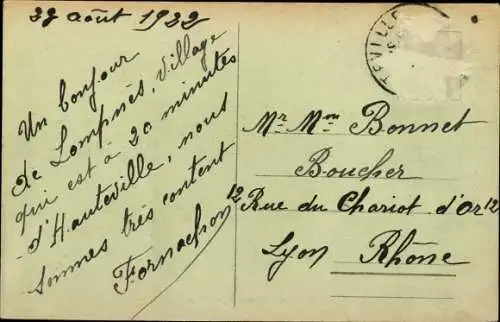 22 août 1922
Un bonjour
de Lompnès, village
qui est à 20 minutes
d'Hauteville, nous
sommes très content
Fornachon
TEVILLE
Mr Mme Bonnet
Boucher
12 Rue du Chariot d'Or 12
Lyon Rhône